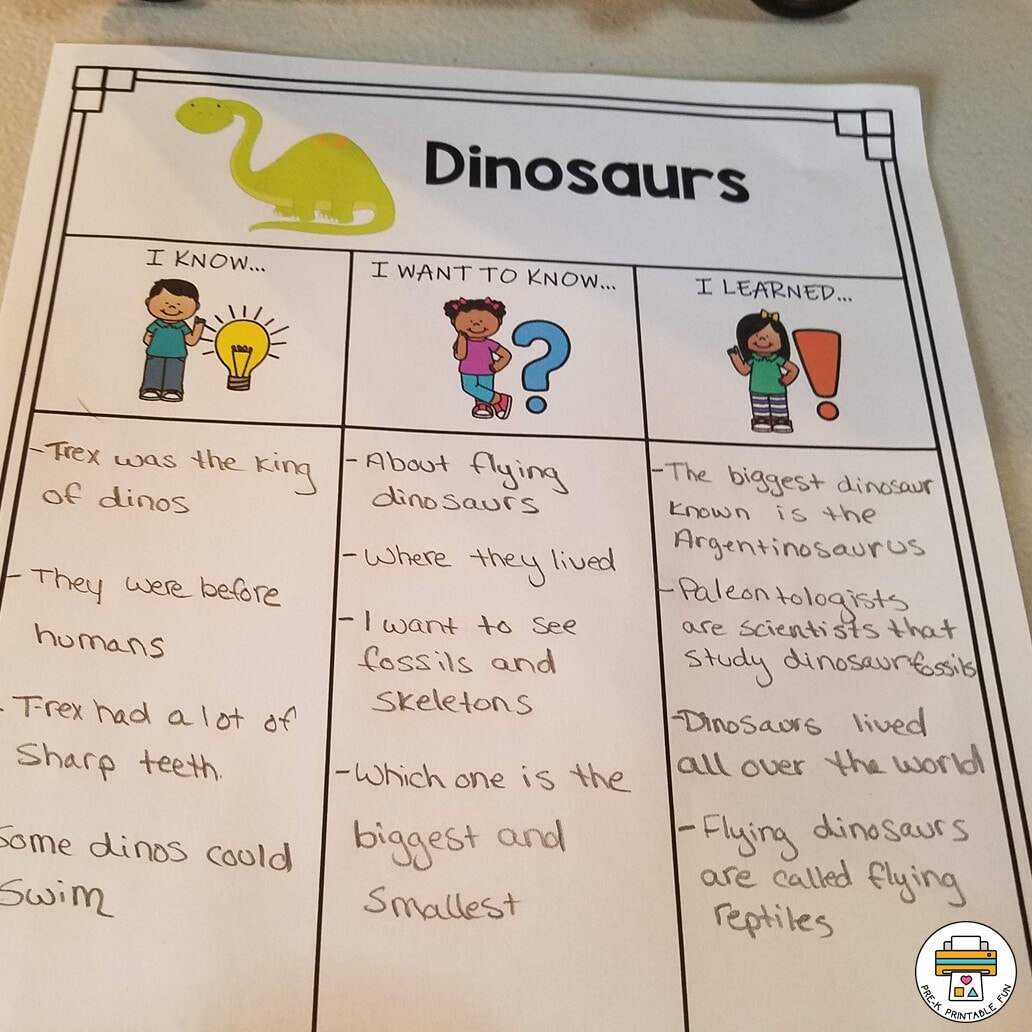 Dinosaurs
I KNOW...
I WANT TO KNOW...
I LEARNED...
-Trex was the king
of dinos
- They were before
humans
- T-rex had a lot of
sharp teeth.
Some dinos could
swim
- About flying
dinosaurs
- Where they lived
- I want to see
fossils and
skeletons
- Which one is the
biggest and
smallest
-The biggest dinosaur
known is the
Argentinosaurus
-Paleontologists
are scientists that
study dinosaur fossils
-Dinosaurs lived
all over the world
- Flying dinosaurs
are called flying
reptiles
PRE-K PRINTABLE FUN